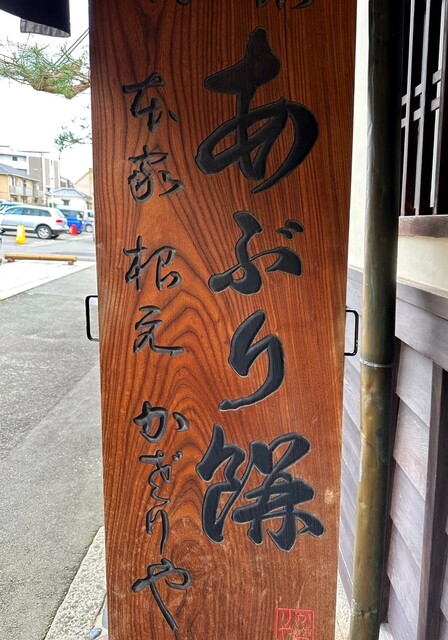 あぶり餅
本家 根元 かざりや